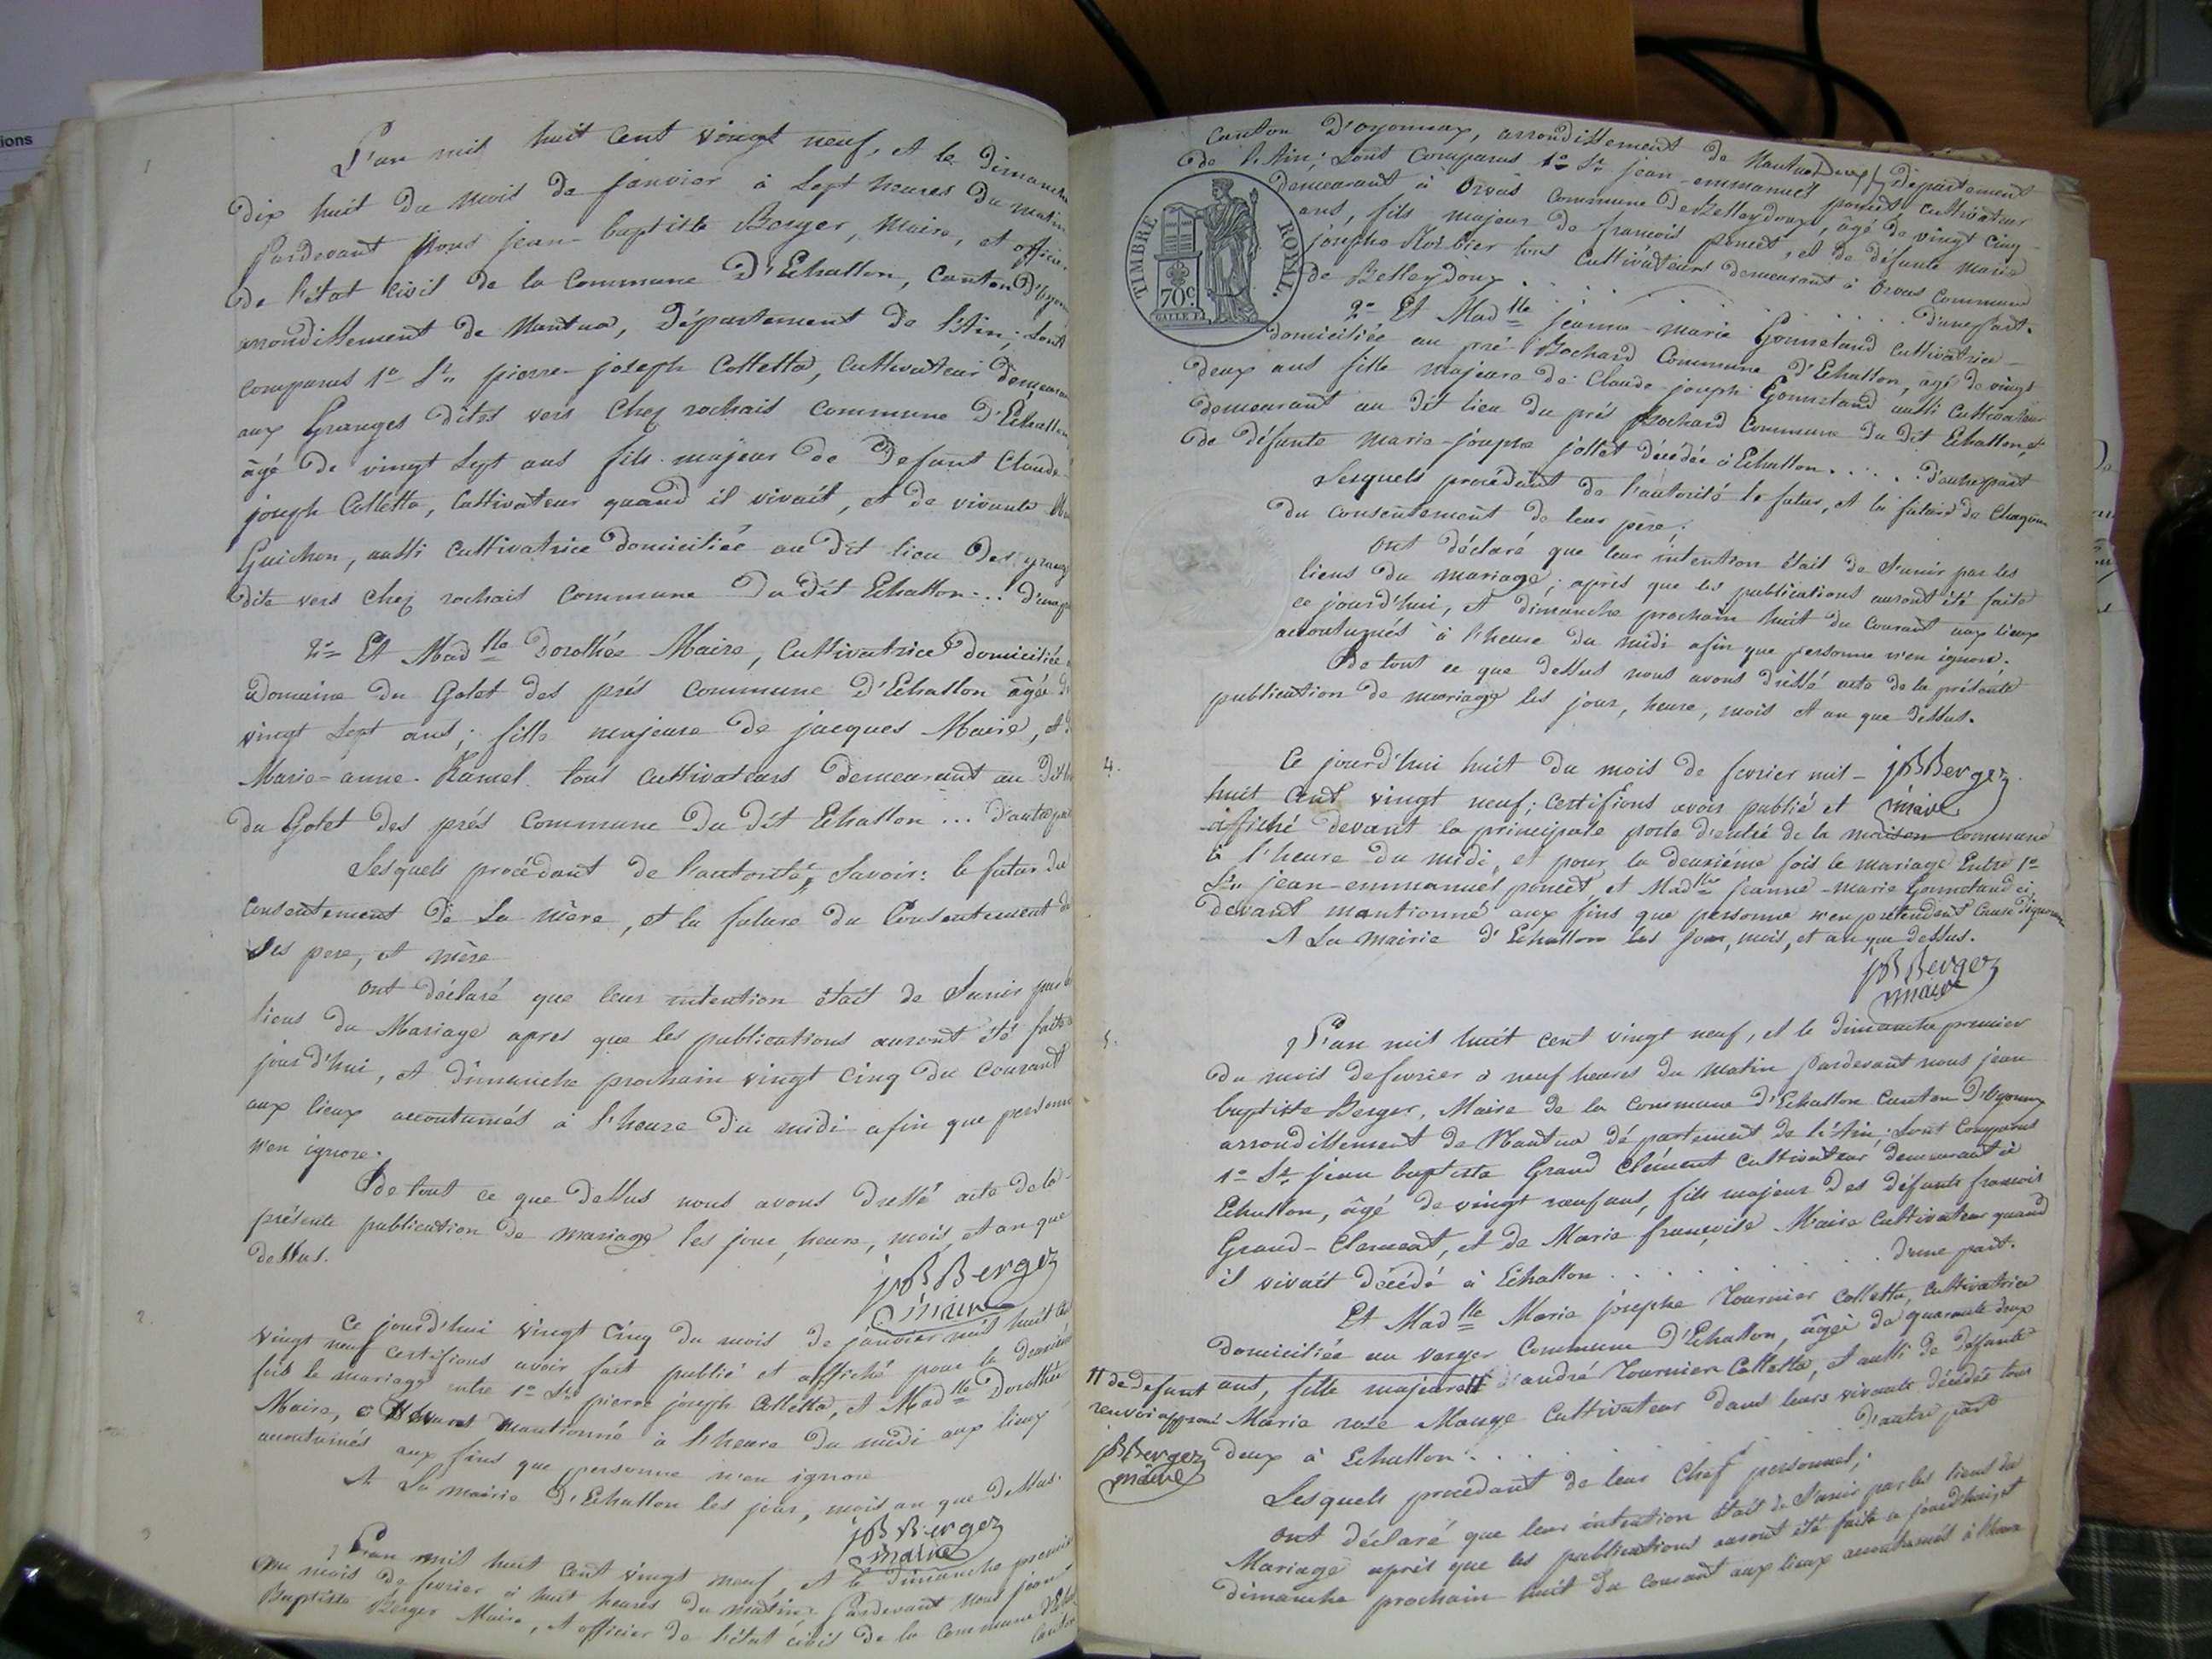 ions
1
L'an mil huit cent vingt neuf, et le Dimanche
dix huit du mois de janvier à sept heures du matin
Pardevant Nous jean-baptiste Berger, Maire, et officier
de l'état civil de la Commune D'Echallon, Canton D'oyon
arrondissement de Nantua, Département de l'Ain; sont
comparus 1º Sr. pierre-joseph Colletta, Cultivateur demeurant
aux Granges dites vers chez rochais Commune D'Echallon,
âgé de vingt sept ans fils majeur de Defunt Claude
joseph Colletta, Cultivateur quand il vivait, et de vivante
Guichon, aussi Cultivatrice domiciliée au dit lieu des grang
dite vers chez rochais Commune du dit Echallon... d'une p
2º Et Madlle Dorothée Maire, Cultivatrice domiciliée
Domaine du Golet des prés Commune D'Echallon âgée de
vingt sept ans; fille majeure de jacques Maire, et
Marie-anne-Hamel tous Cultivateurs demeurant au
du Golet des prés Commune du dit Echallon... d'autre part
Lesquels procédant de l'autorité, Savoir: le futur du
consentement de sa mère, et la future du Consentement de
ses pere, et mère
ont déclaré que leur intention était de s'unir par les
liens du Mariage apres que les publications auront été faites
jourd'hui, et Dimanche prochain vingt cinq du courant
aux lieux accoutumés à l'heure du midi afin que personne
n'en ignore.
De tout ce que dessus nous avons dressé acte de la
présente publication de mariage les jour, heure, mois, et an que
dessus.
jBBerger
maire
2.
Ce jourd'hui vingt cinq du mois de janvier mil huit cent
vingt neuf certifions avoir fait publié et affiché pour la deuxième
fois le mariage entre 1º Sr. pierre joseph Colletta, et Madlle Dorothée
Maire, ci devant mantionné à l'heure du midi aux lieux
accoutumés aux fins que personne n'en ignore
A La mairie d'Echallon les jour, mois an que dessus.
jBBerger
maire
3
L'an mil huit cent vingt neuf, et le Dimanche premier
du mois de fevrier à huit heures du matin; Pardevant Nous jean
Baptiste Berger Maire, et officier de l'état civil de la Commune d'Echal
Canton
Canton D'oyonnax, arrondissement de Nantua Département
de l'Ain; sont comparus 1º Sr. jean-emmanuel poncet cultivateur
demeurant à Orvas Commune de Belleydoux, âgé de vingt cinq
ans, fils majeur de francois poncet, et de défunte Marie
josephe Norbier tous Cultivateurs demeurant à Orvas Commune
de Belleydoux . . . . . . d'une part.
TIMBRE ROYAL.
70c
2º Et Madlle jeanne-marie Gonnetand Cultivatrice
domiciliée au pré Rochard Commune d'Echallon, âgé de vingt
deux ans fille majeure de Claude-joseph Gonnetand aussi Cultivateur
demeurant au dit lieu du pré Rochard Commune du dit Echallon, et
de défunte marie-josephe jollet décédée à Echallon . . . . . d'autre part
Lesquels procédant de l'autorité le futur, et la future de Chaqun
du consentement de leur père;
ont déclaré que leur intention était de s'unir par les
liens du mariage; après que les publications auront été faites
ce jourd'hui, et dimanche prochain huit du courant aux lieux
accoutumés à l'heure du midi afin que personne n'en ignore.
De tout ce que dessus nous avons dressé acte de la présente
publication de mariage les jour, heure, mois et an que dessus.
jBBerger
maire
4.
Ce jourd'hui huit du mois de fevrier mil-
huit cent vingt neuf; certifions avoir publié et
affiché devant la principale porte d'entré de la maison commune
à l'heure du midi, et pour la deuxième fois le mariage Entre 1º
Sr. jean-emmanuel poncet et Madlle jeanne-marie Gonnetand ci
devant mantionné aux fins que personne n'en prétendent cause d'ignorance
A La mairie d'Echallon les jour, mois, et an que dessus.
jBBerger
maire
5.
L'an mil huit cent vingt neuf, et le dimanche premier
du mois de fevrier à neuf heures du matin pardevant nous jean
baptiste Berger, Maire de la Commune d'Echallon Canton D'oyonnax
arrondissement de Nantua département de l'Ain; sont Comparus
1º Sr. jean baptiste Grand clément cultivateur demeurant à
Echallon, âgé de vingt neuf ans, fils majeur des défunts francois
Grand-Clement, et de Marie françoise Maire Cultivateur quand
il vivait décédé à Echallon . . . . . . d'une part.
Et Madlle Marie josephe Tournier Colletta, Cultivatrice
domiciliée au verger Commune d'Echallon, âgée de quarante deux
ans, fille majeure # d'andré Tournier Colletta, et aussi de défunte
Marie rose Mauge Cultivateur dans leurs vivants décédés tous
deux à Echallon . . . . . d'autre part
# de defunt
renvoi approuvé
jBBerger
maire
Lesquels procedant de leur chef personnel;
ont déclaré que leur intention était de s'unir par les liens du
Mariage après que les publications auront été faite ce jourd'hui, et
dimanche prochain huit du courant aux lieux accoutumés à l'heure